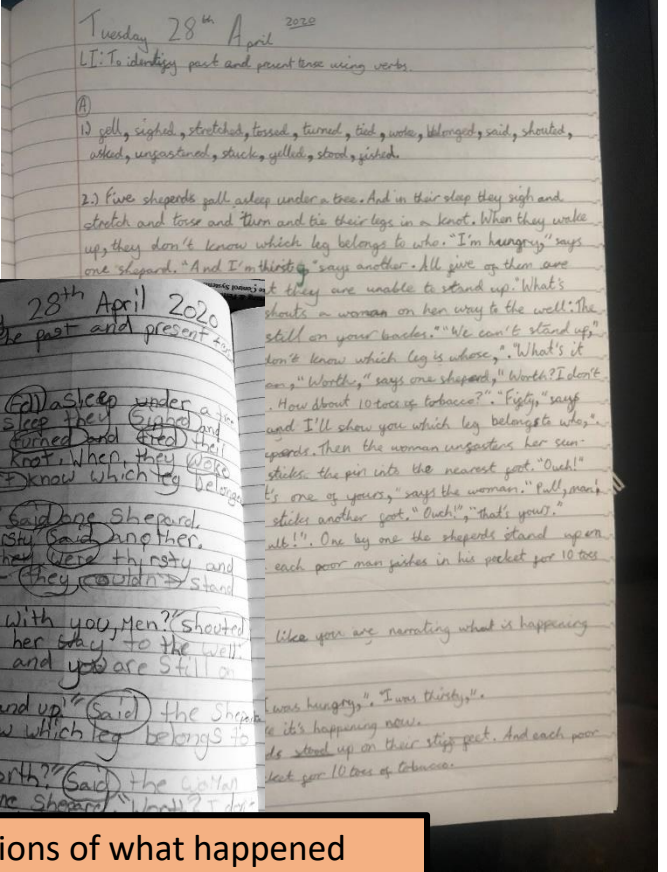 Tuesday 28th April 2020
LI: To identify past and present tense using verbs.
A
1) fell, sighed, stretched, tossed, turned, tied, woke, belonged, said, shouted,
asked, unfastened, stuck, yelled, stood, fished.
2.) Five sheperds fall asleep under a tree. And in their sleep they sigh and
stretch and toss and turn and tie their legs in a knot. When they wake
up, they don't know which leg belongs to who. "I'm hungry," says
one shepard. "And I'm thirsty," says another. All five of them are
t they are unable to stand up. "What's
shouts a woman on her way to the well: The
still on your backs." "We can't stand up,"
don't know which leg is whose,". "What's it
"Worth," says one sheperd, "Worth? I don't
. How about 10 toes of tobacco?". "Fifty," says
and I'll show you which leg belongs to who,".
Then the woman unfastens her sun-
sticks the pin into the nearest foot. "Ouch!"
one of yours," says the woman. "Pull, man!
sticks another foot. "Ouch!", "That's yours."
One by one the sheperds stand up on
each poor man fishes in his pocket for 10 toes
like you are narrating what is happening
was hungry,". "I was thirsty,".
it's happening now.
stood up on their stiff feet. And each poor
for 10 toes of tobacco.
28th April 2020
the past and present
Fell asleep under a
sleep they Sighed and
turned and tied their
Knot. When, they woke
know which leg belonged
Said one Shepard.
Said another.
they were thirsty and
they couldn't stand
with you, Men?" shouted
her way to the well:
and you are still on
up" Said the
which leg belongs to
Said the woman
one Shepard "Worth? I
ions of what happened